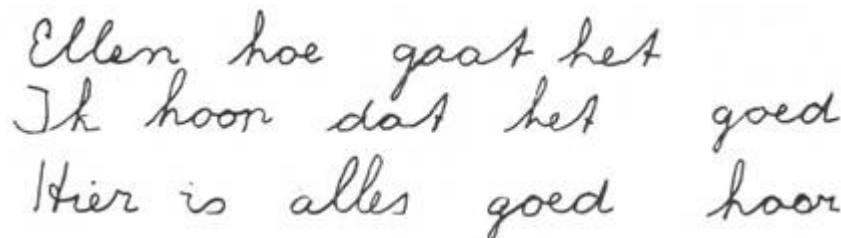 Ellen hoe gaat het
Ik hoor dat het goed
Hier is alles goed hoor